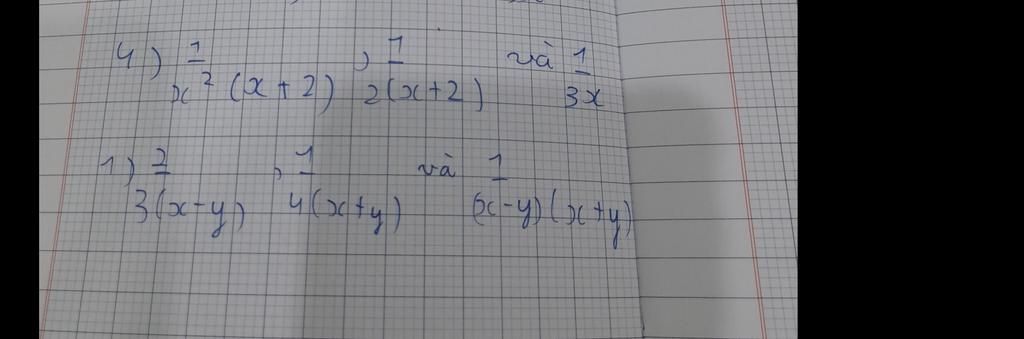 4) 1/x² (x+2) , 1/2(x+2) và 1/3x
1) 2/3(x-y) , 1/4(x+y) và 1/(x-y)(x+y)